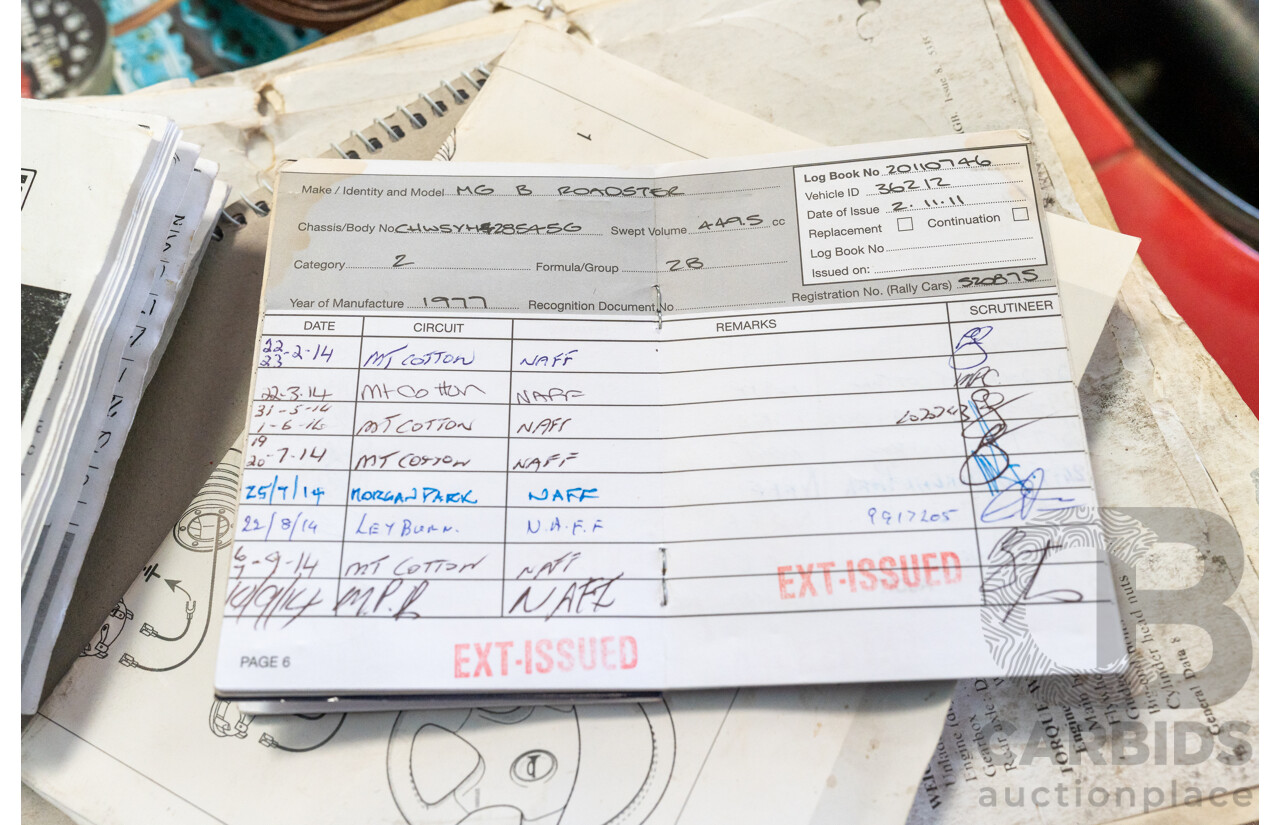 Make / Identity and Model MG B ROADSTER
Log Book No 20110746
Vehicle ID 36212
Date of Issue 2.11.11
Replacement Continuation
Log Book No
Issued on:
Chassis/Body No Swept Volume 4495 cc
Category 2 Formula/Group 2B
Year of Manufacture 1977 Recognition Document No Registration No. (Rally Cars) S20875
DATE CIRCUIT REMARKS SCRUTINEER
22-2-14 MT COTTON NAFF
23
22-3-14 Mt Cotton NAFF
31-5-14
1-6-14 MT COTTON NAFF
19
20-7-14 MT COTTON NAFF
25/7/14 MORGAN PARK NAFF
22/8/14 LEYBURN. N.A.F.F 9917205
6
7-9-14 MT COTTON NAFF
M.P.R
EXT-ISSUED
PAGE 6 EXT-ISSUED
General Data
Cylinder head nuts
CARBIDS
auctionplace